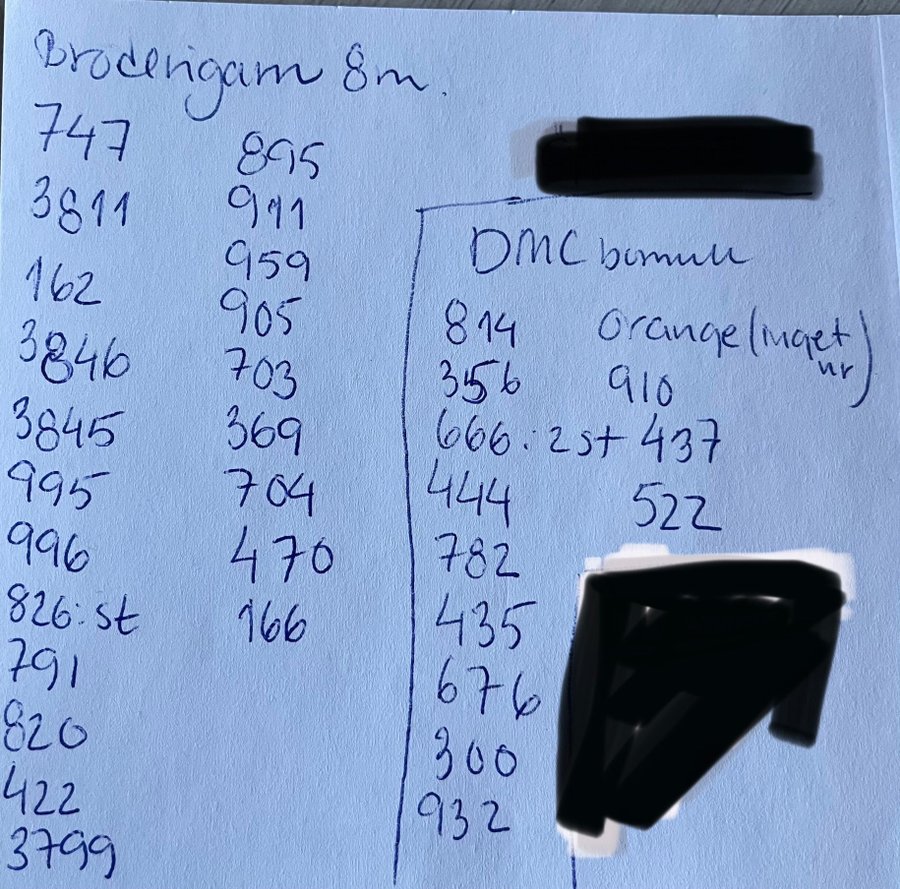 Broderigarn 8m.
747
3811
162
3846
3845
995
996
826: st
791
820
422
3799
895
911
959
905
703
369
704
470
166
DMC bomull
814
356
666: 2st
444
782
435
676
300
932
orange (inget nr)
910
437
522